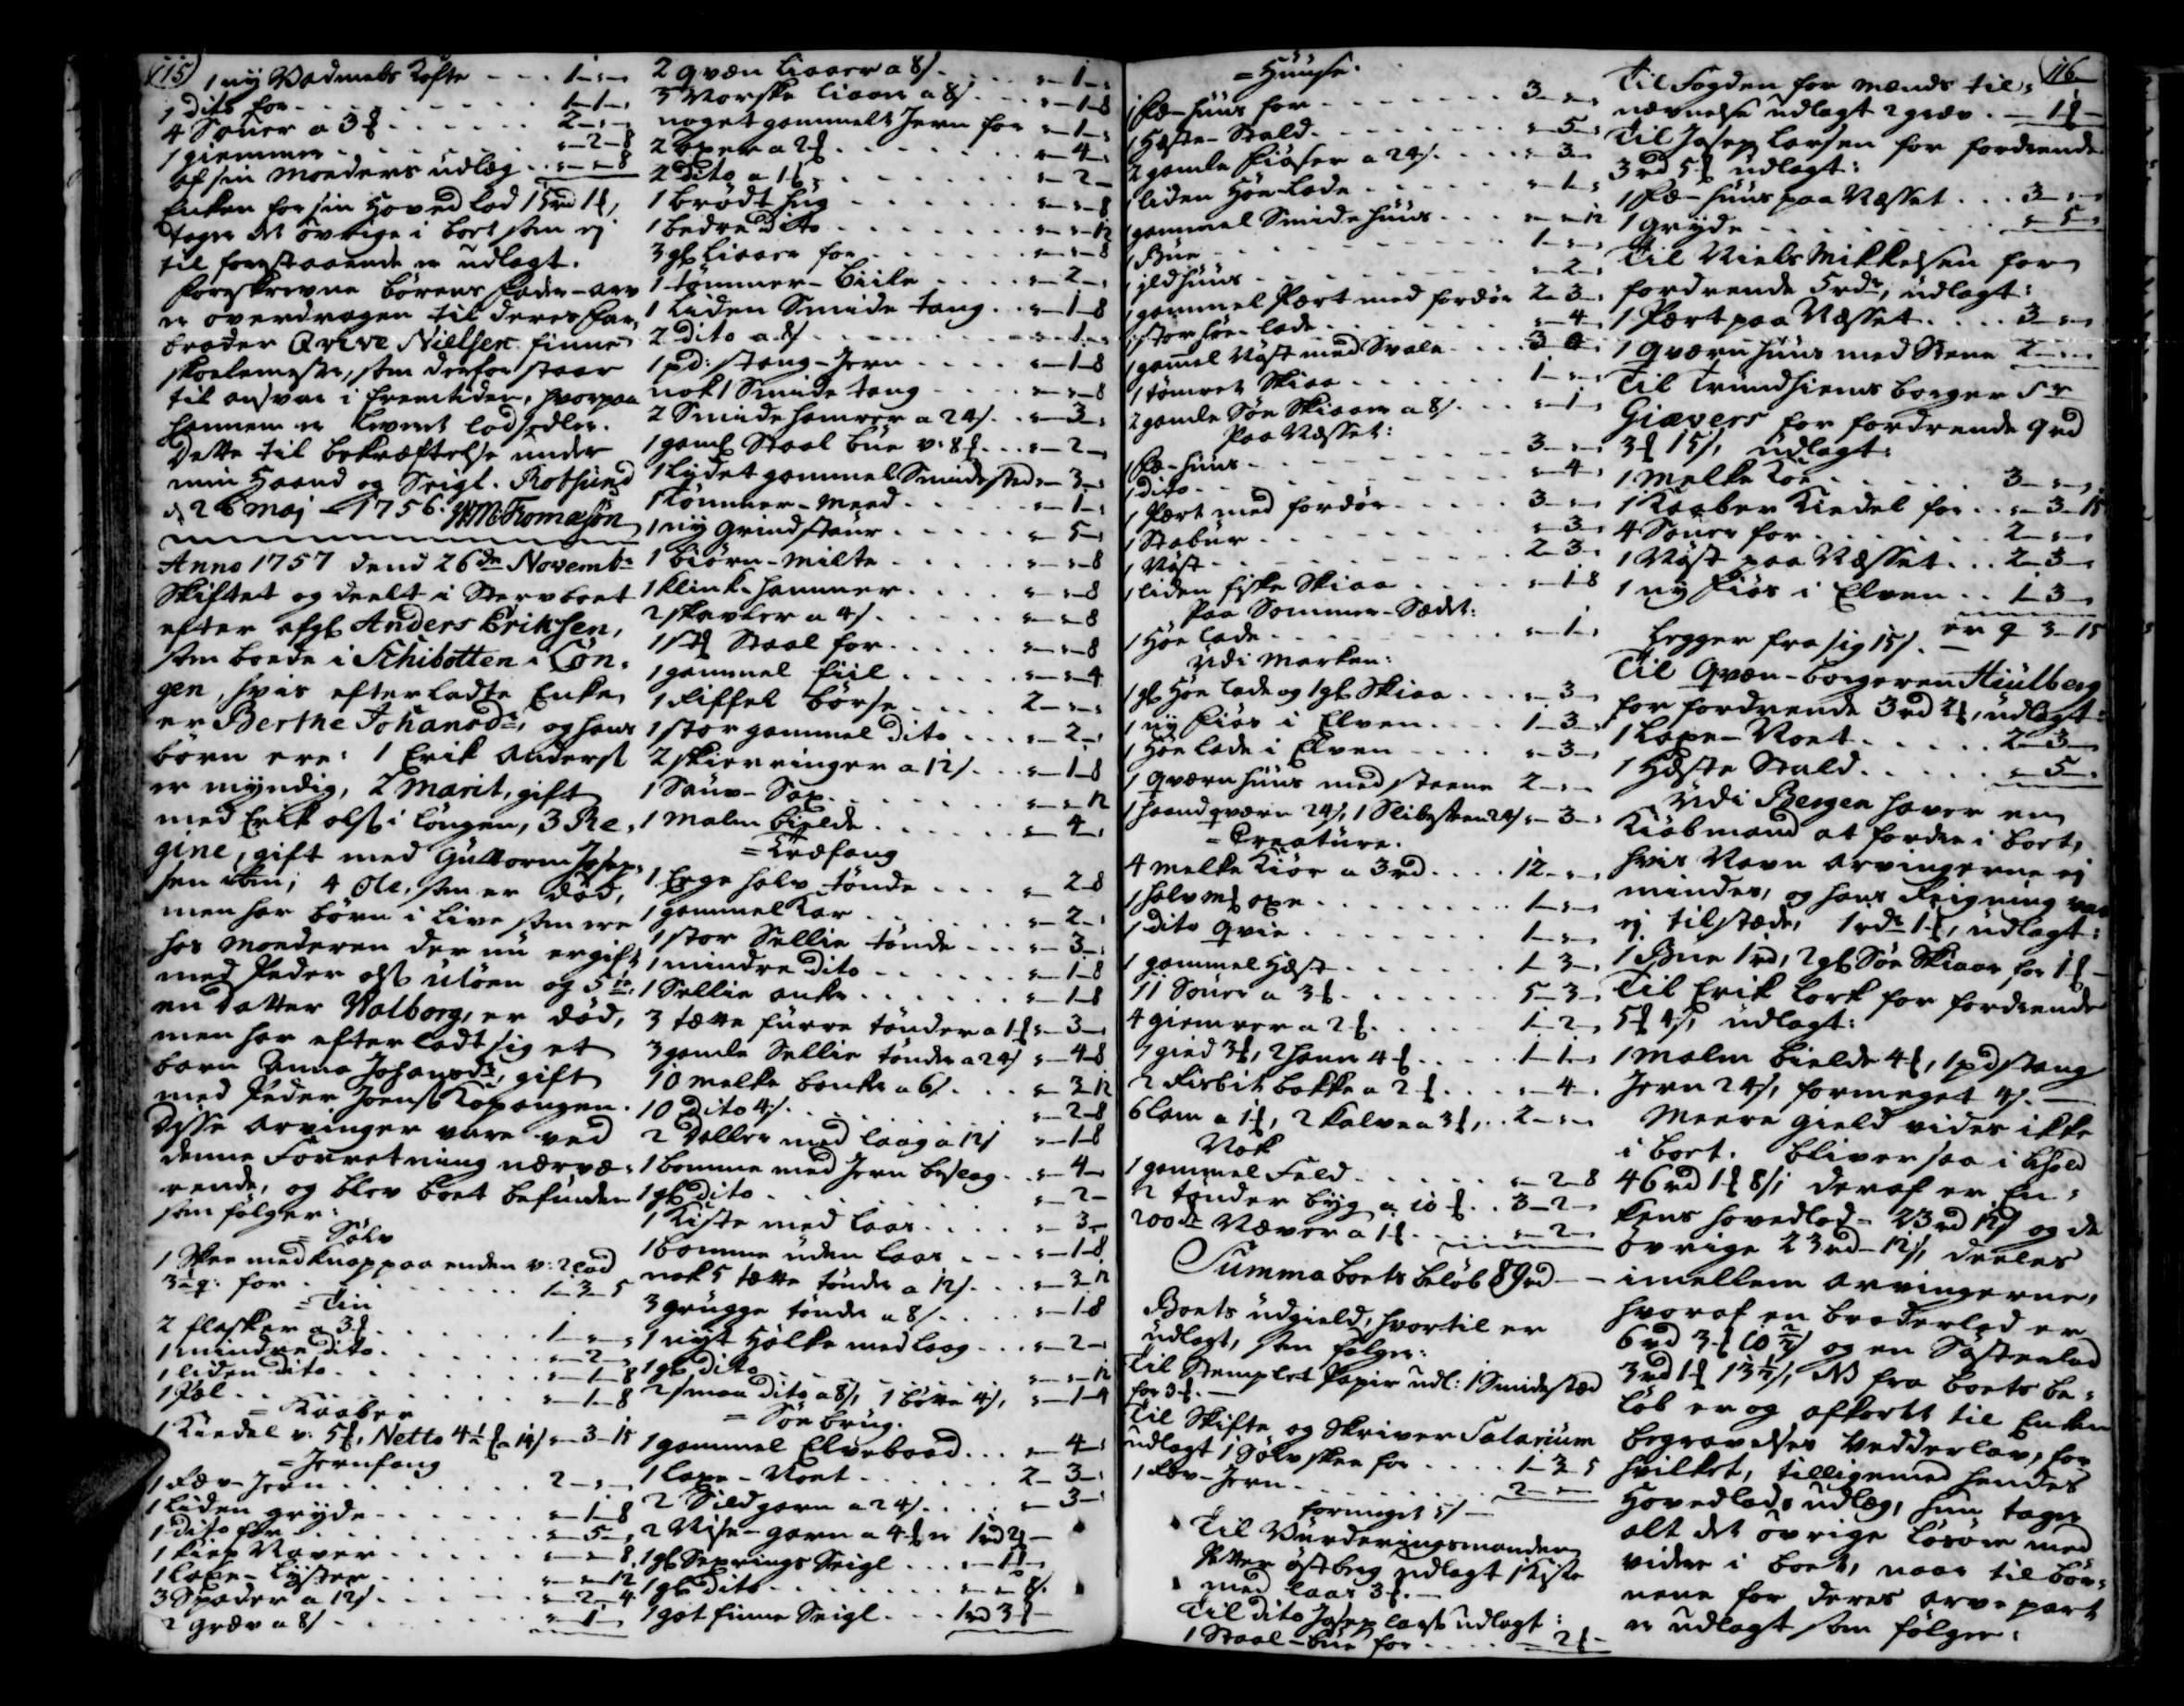 115
1 ny Vadmels Kofte - - - 1 - „ - „
1 dito for - - - - 1 - 1 - „
4 Souer a 3 ƒ - - - - 2 - „ - „
1 giemmer - - - - „ - 2 - 8
af sin Moeders udlæg - - „ - „ - 8
Enken for sin Hoved lod 15rd 1ƒ,
tager det övrige i boet som ej
til forestaaende er udlagt.
Foreskrevne börens Fader-arv
er overdragen til deres Far,
broder Qvive Nielsen finne
skoelemester, som derfor staar
til ansvar i fremtiden, hvorpaa
hannem er leveret lodsedler.
Dette til bekræftelse under
min Haand og Seigl. Rotsund
d. 26 Maj 1756. WMTromasön
Anno 1757 dend 26de Novembr
Skiftet og deelt i Stervboet
efter afgl Anders Eriksen,
som boede i Schibotten i Lön-
gen, hvis efterladte Enke
er Berthe Johansdr, og hans
börn ere: 1 Erik Anderss
er myndig, 2 Marit, gift
med Erik Olss i Löngen, 3 Re-
gine, gift med Guttorm Josep-
sen ibm, 4 Ole, som er död,
men har börn i Live som ere
hos Moederen der nu er gift
med Peder Olss Ulöen og 5te
en datter Valborg, er död,
men har efterladt sig et
barn Anna Johansdr, gift
med Peder Joenss Kopangen.
Disse arvinger vare ved
denne Forretning nærvæ-
rende, og blev boet befunden
som fölger:
= Sölv
1 Skee med Knap paa enden v: 2 lod
3 q: for - - - - 1 - 3 - 5
= Tin
2 flasker a 3 ƒ - - - - 1 - „ - „
1 mindre dito - - - - „ - 2 - „
1 liden dito - - - - „ - 1 - 8
1 Pæl - - - - „ - 1 - 8
= Kaaber
1 Kiedel v: 5 ƒ, Netto 4½ ƒ a 14 / „ - 3 - 15
= Jernfang
1 Ræv-Jern - - - - 2 - „ - „
1 liden gryde - - - - „ - 1 - 8
1 dito for - - - - „ - 5 - „
1 Naver - - - - „ - „ - 8
1 Laxe-Lyster - - - - „ - „ - 12
3 Spader a 12 / - - - - „ - 2 - 4
2 græv a 8 / - - - - „ - 1 - „
2 qvæn liaaer a 8 / - - - - „ - 1 - „
3 Norske liaaer a 8 / - - - „ - 1 - 8
noget gammelt Jern for „ - 1 - „
2 Öxer a 2 ƒ - - - - „ - 4 - „
2 dito a 1 ƒ - - - - „ - 2 - „
1 brödt hug - - - - „ - „ - 8
1 bedre dito - - - - „ - „ - 12
3 gl liaaer for - - - - „ - „ - 8
1 tömmer-biile - - - - „ - 2 - „
1 liden Smide tang - - „ - 1 - 8
2 dito a 8 / - - - - „ - 1 - „
1 pd: stang-Jern - - - - „ - 1 - 8
nok 1 Smide tang - - - - „ - „ - 8
2 Smide hamrer a 24 / - - „ - 3 - „
1 gaml Staal bue v: 8 ƒ - - - „ - 2 - „
1 lydet gammel Smidestæd „ - 3 - „
1 tömmer-Meed - - - - „ - 1 - „
1 ny grindstaur - - - - „ - 5 - „
1 biörn-Milte - - - - „ - „ - 8
1 klink-hammer - - - - „ - „ - 8
2 skavler a 4 / - - - - „ - „ - 8
1 st ƒ Staal for - - - - „ - „ - 8
1 gammel fiil - - - - „ - „ - 4
1 Riffel börse - - - - 2 - „ - „
1 stor gammel dito - - - „ - 2 - „
2 skierringer a 12 / - - - „ - 1 - 8
1 Sauv-Sax - - - - „ - „ - 12
1 Malm bielde - - - - „ - 4 - „
= Træfang
1 Ege halv tönde - - - - „ - 2 - 8
1 gammel kar - - - - „ - 2 - „
1 stor Sellie tönde - - - „ - 3 - „
1 mindre dito - - - - „ - 1 - 8
1 Sellie anke - - - - „ - 1 - 8
3 tætte furre tönder a 1 ƒ „ - 3 - „
3 gamle Sellie tönder a 24 / „ - 4 - 8
10 melke bonker a 6 / - - - „ - 3 - 12
10 dito 4 / - - - - „ - 2 - 8
2 daller med laag a 12 / „ - 1 - 8
1 bomme med Jern beslag - - „ - 4 - „
1 gl dito - - - - „ - 2 - „
1 Kiste med laas - - - - „ - 3 - „
1 bomme uden laas - - - „ - 1 - 8
nok 5 tætte tönder a 12 / - - „ - 3 - 12
3 grugge tönder a 8 / - - - - „ - 1 - 8
1 nyt hölke med laag - - - „ - 2 - „
1 gl dito - - - - „ - „ - 12
2 smaa dito a 8 /, 1 bötte 4 /, „ - 1 - 4
= Söe brug.
1 gammel Elvebaad - - - „ - 4 - „
1 Laxe-Noet - - - - 2 - 3 - „
2 Sildgarn a 24 / - - - - „ - 3 - „
2 Nise-garn a 4 ƒ er 1rd 2 ƒ -
1 gl Sexrings Seigl - - - „ - 1 ƒ -
1 gl dito - - - - „ - „ - 8 /.
1 got finne Seigl - - - 1rd 3 ƒ -
= Huuse.
1 Fæ-huus for - - - - 3 - „ - „
1 Hæste-Stald - - - - „ - 5 - „
2 gamle Fiöser a 24 / - - - - „ - 3 - „
1 liden Höe-Lade - - - - „ - 1 - „
1 gammel Smide huus - - - „ - „ - 12
1 Bue - - - - 1 - „ - „
1 jldhuus - - - - „ - 2 - „
1 gammel Pært med fordör 2 - 3 - „
1 stor höe-lade - - - - „ - 4 - „
1 gammel Nöst med Svale - - - 3 -
1 tömret Skiaa - - - - 1 - „ - „
2 gamle Söe Skiaaer a 8 / - - - „ - 1 - „
Paa Næsset:
1 Fæ-huus - - - - 3 - „ - „
1 dito - - - - „ - 4 - „
1 Pært med fordör - - - - 3 - „ - „
1 Stabur - - - - „ - 3 - „
1 Nöst - - - - 2 - 3 - „
1 liden fiske Skiaa - - - - „ - 1 - 8
Paa Sommer-Sædet:
1 Höe lade - - - - „ - 1 - „
Udi Marken:
1 gl Höe lade og 1 gl Skiaa - - - „ - 3 - „
1 ny Fiös i Elven - - - - 1 - 3 - „
1 Höe lade i Elven - - - - „ - 3 - „
1 Qværn huus med steene 2 - „ - „
1 haandqværn 24 /, 1 Slibesteen 24 / „ - 3 - „
= Creature.
4 melke Kiör a 3rd - - - - 12 - „ - „
1 halv oxe - - - - 1 - „ - „
1 dito qvie - - - - 1 - „ - „
1 gammel Hæst - - - - 1 - 3 - „
11 Souer a 3 ƒ - - - - 5 - 3 - „
4 giemrer a 2 ƒ - - - - 1 - 2 - „
1 gied 3 ƒ, 2 hane 4 ƒ - - - - 1 - 1 - „
2 bokke a 2 ƒ - - - - „ - 4 - „
6 lam a 1 ƒ, 2 kalve a 3 ƒ, - - 2 - „ - „
Nok
1 gammel Feld - - - - „ - 2 - 8
2 tönder byg a 10 ƒ - - 3 - 2 - „
200de Næver a 1 ƒ - - - - „ - 2 - „
Summa boets belöb 89rd - -
Boets udgield, hvortil er
udlagt, som fölger:
Til Stemplet Papir udl: 1 Smidestæd
for 3 ƒ. -
Til Skifte og Skriver Salarium
udlagt 1 Sölv skee for - - - - 1 - 3 - 5
1 Ræv-Jern - - - - 2 - „ - „
formeget 5 / -
Til Vurderingsmanden
Petter Östberg udlagt 1 Kiste
med laas 3 ƒ. -
Til dito Josep Larss udlagt:
1 Staal-bue for - - - - - 2 ƒ -
116
Til Fogden for Mænds til-
nævnelse udlagt 2 græv. - 1 ƒ -
Til Josep Larsen for fordrende
3rd 5 ƒ udlagt:
1 Fæ-huus paa Næsset - - - 3 - „ - „
1 gryde - - - - „ - 5 - „
Til Niels Mikkelsen for
fordrende 5rdr, udlagt:
1 Pært paa Næsset - - - - 3 - „ - „
1 Qværn huus med Stene 2 - „ - „
Til Trundhiems borger Sr
Giævers for fordrende 9rd
3 ƒ 15 /, udlagt:
1 Melke Koe - - - - 3 - „ - „
1 Kaaber Kiedel for - - „ - 3 - 15
4 Souer for - - - - 2 - „ - „
1 Nöst paa Næsset - - - 2 - 3 - „
1 ny Fiös i Elven - - 1 - 3 - „
er 9 - 3 - 15
Legger fra sig 15 /. -
Til Qvæn-borgeren Hiulberg
for fordrende 3rd 2 ƒ, udlagt:
1 Laxe-Noet - - - - 2 - 3 - „
1 Hæste Stald - - - - „ - 5 - „
Udi Bergen haver en
Kiöbmand at fordre i boet,
hvis Navn arvingerne ej
mindes, og hans Reigning var
ej tilstæde, 1rdr 1 ƒ, udlagt:
1 Bue 1rd, 2 gl Söe Skiaaer for 1 ƒ -
Til Erik Lork for fordrende
5 ƒ 4 /, udlagt:
1 Malm bielde 4 ƒ, 1 pd stang
Jern 24 /, formeget 4 /. -
Meere gield vides ikke
i boet. bliver saa i behold
46rd 1 ƒ 8 /, deraf er En-
kens hovedlod - 23rd 12 / og de
övrige 23rd - 12 /, deeles
imellem arvingerne,
hvoraf en broderlod er
6rd 3 ƒ 10 2/7 / og en Sösterlod
3rd 1 ƒ 13 1/7 /, NB fra boets be-
löb er og afkortt til Enken
begravelses Vedderlav, for
hvilket, tilligemed hendes
Hovedlods udlæg, hun tager
alt det övrige lösöre med
videre i boet, naar til bör-
nene for deres arve part
er udlagt som fölger: